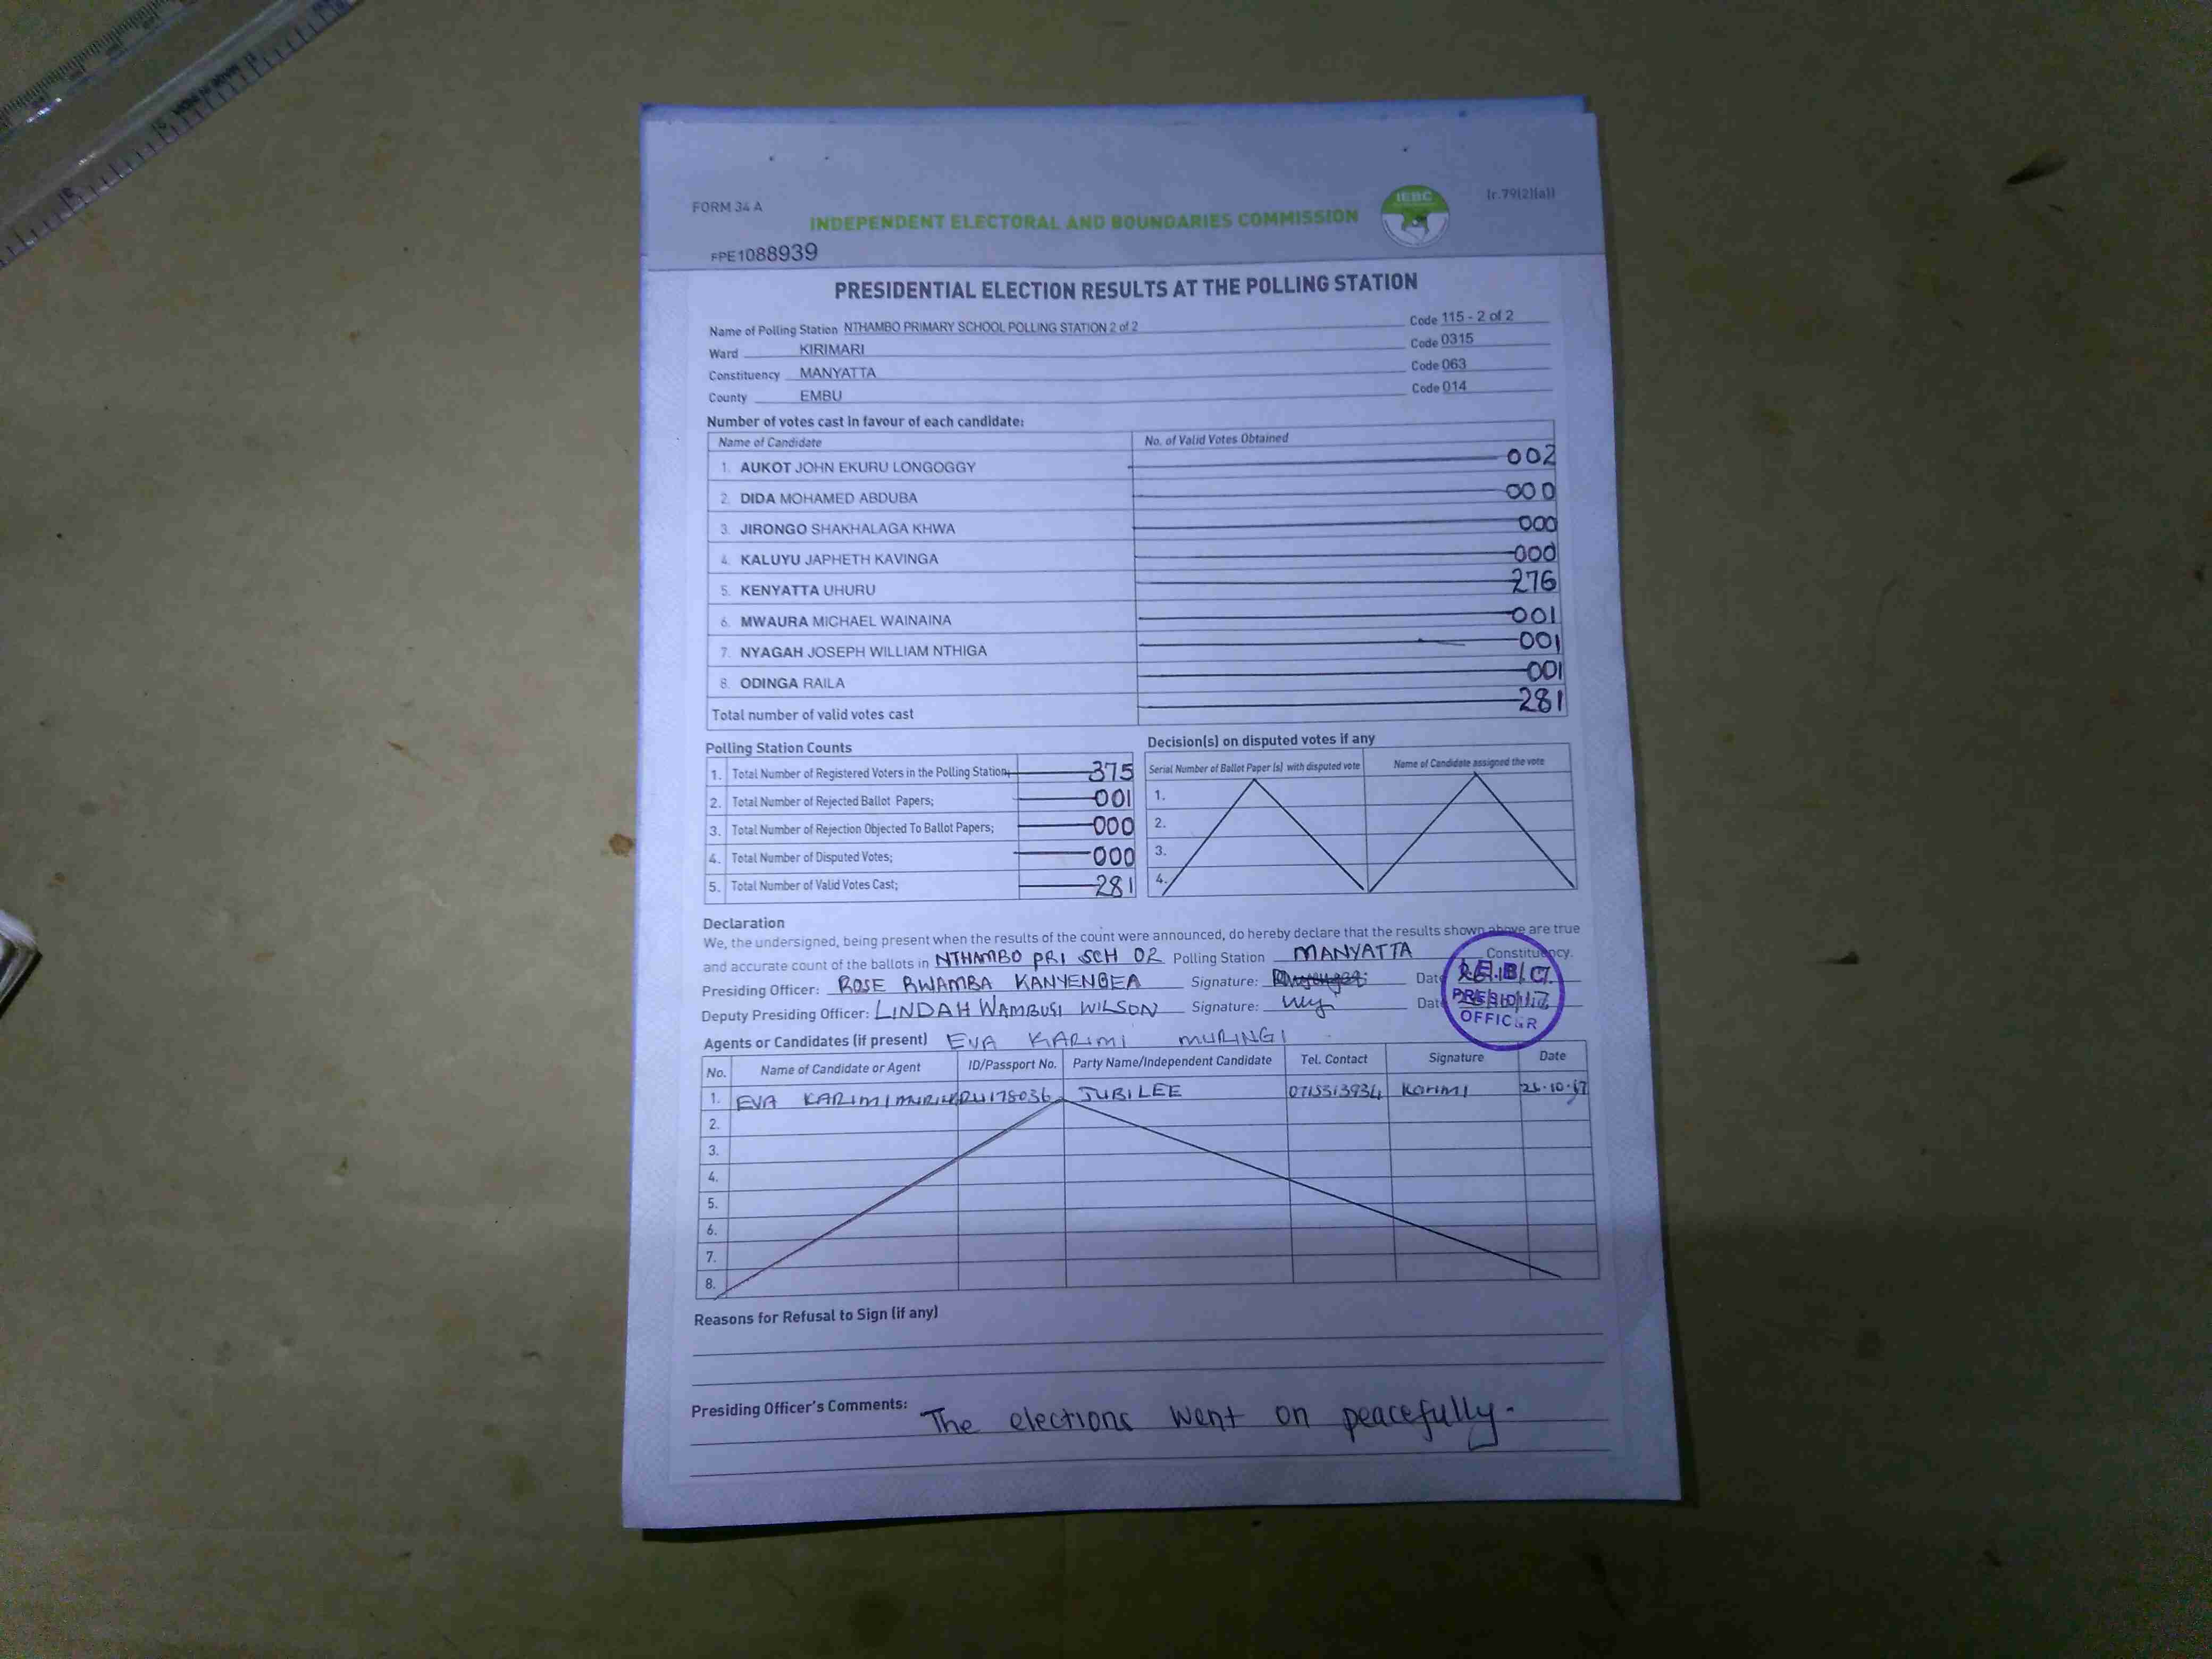 FORM 34 A
(r.79(2)(a))
IEBC
INDEPENDENT ELECTORAL AND BOUNDARIES COMMISSION
FPE1088939
PRESIDENTIAL ELECTION RESULTS AT THE POLLING STATION
Name of Polling Station NTHAMBO PRIMARY SCHOOL POLLING STATION 2 of 2 Code 115 - 2 of 2
Ward KIRIMARI Code 0315
Constituency MANYATTA Code 063
County EMBU Code 014
Number of votes cast in favour of each candidate:
Name of Candidate No. of Valid Votes Obtained
1. AUKOT JOHN EKURU LONGOGGY 002
2. DIDA MOHAMED ABDUBA 000
3. JIRONGO SHAKHALAGA KHWA 000
4. KALUYU JAPHETH KAVINGA 000
5. KENYATTA UHURU 276
6. MWAURA MICHAEL WAINAINA 001
7. NYAGAH JOSEPH WILLIAM NTHIGA 001
8. ODINGA RAILA 001
Total number of valid votes cast 281
Polling Station Counts
1. Total Number of Registered Voters in the Polling Station; 375
2. Total Number of Rejected Ballot Papers; 001
3. Total Number of Rejection Objected To Ballot Papers; 000
4. Total Number of Disputed Votes; 000
5. Total Number of Valid Votes Cast; 281
Decision(s) on disputed votes if any
Serial Number of Ballot Paper (s) with disputed vote Name of Candidate assigned the vote
1.
2.
3.
4.
Declaration
We, the undersigned, being present when the results of the count were announced, do hereby declare that the results shown above are true
and accurate count of the ballots in NTHAMBO PRI SCH 02 Polling Station MANYATTA Constituency.
Presiding Officer: ROSE RWAMBA KANYENGEA Signature: Date
Deputy Presiding Officer: LINDAH WAMBUSI WILSON Signature: Date
I.E.B.C.
PRESIDING
OFFICER
Agents or Candidates (if present) EVA KARIMI MURINGI
No. Name of Candidate or Agent ID/Passport No. Party Name/Independent Candidate Tel. Contact Signature Date
1. EVA KARIMI JUBILEE 0715313934 Karimi 26.10.17
2.
3.
4.
5.
6.
7.
8.
Reasons for Refusal to Sign (if any)
Presiding Officer's Comments: The elections went on peacefully.